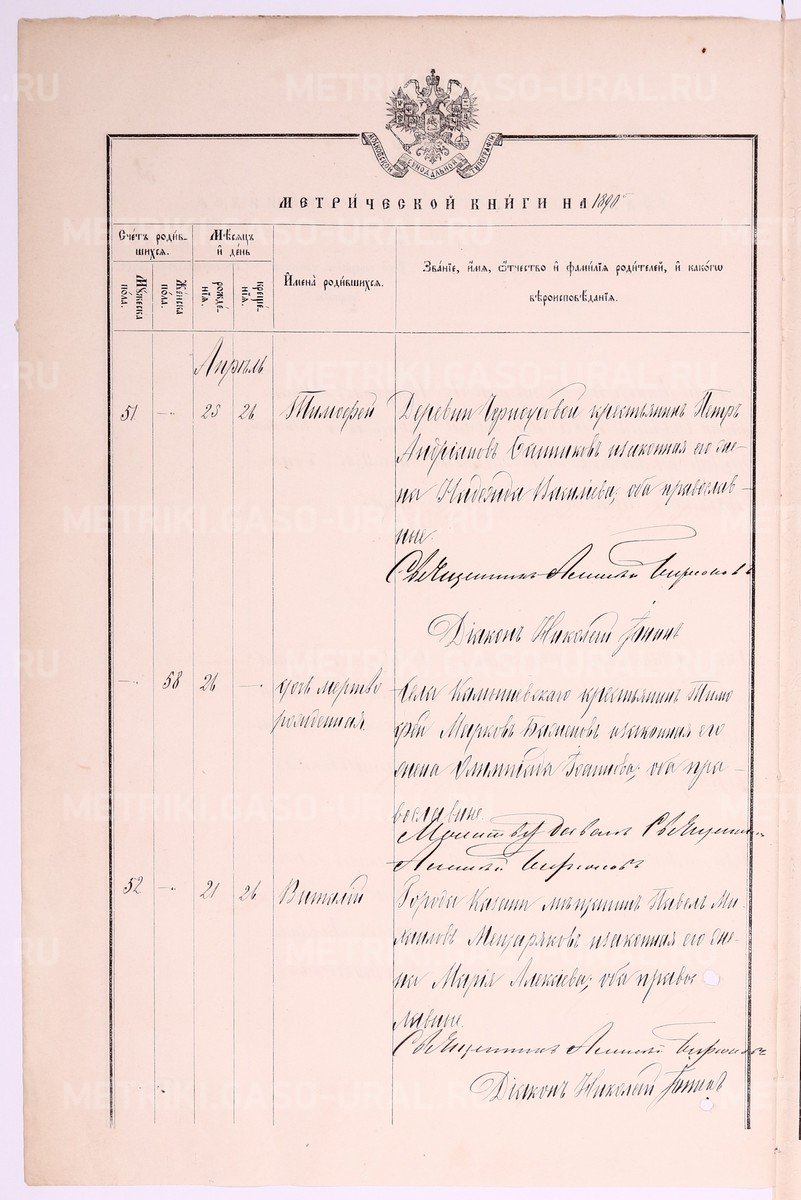 МОСКОВСКОЙ СѴНОДАЛЬНОЙ ТИПОГРАФІИ
МЕТРИЧЕСКОЙ КНИГИ НА 1890
Счетъ родив-
шихся.
Мѣсяцъ
и день
Имена родившихся.
Званіе, имя, отчество и фамилія родителей, и какогѡ
вѣроисповѣданія.
Мужеска
пола.
Женска
пола.
рожде-
нія.
креще-
нія.
Апрѣль
51 -„- 25 26 Тимофей
Деревни Черноусовой крестьянинъ Петръ
Андріановъ и законная его же-
на Надежда Василіева, оба православ-
ные.
Священникъ Алексѣй Бирюковъ
Діаконъ Николай
-„- 58 26 -„- дочь мертво
рожденная
Села Камышевскаго крестьянинъ Тимо
фей Марковъ и законная его
жена Олимпіада Іоаннова, оба пра-
вославные.
Молитву давалъ Священникъ
Алексѣй Бирюковъ
52 -„- 21 26 Виталій
Города Казани мѣщанинъ Павелъ Ми-
хаиловъ Мещаряковъ и законная его же-
на Марія Алексѣева, оба правос
лавные.
Священникъ Алексѣй Бирюковъ
Діаконъ Николай
METRIKI.GASO-URAL.RU